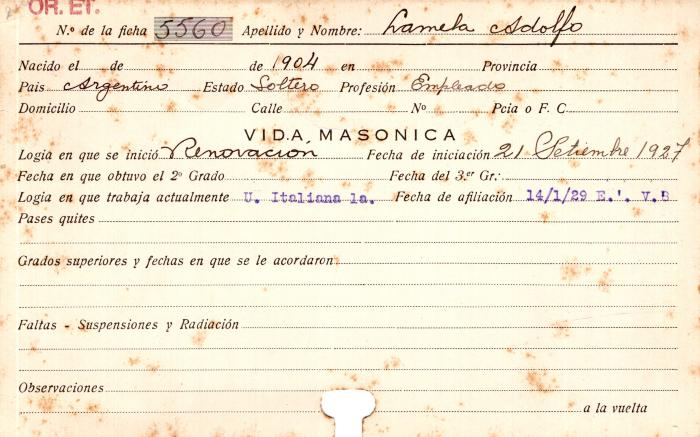 OR. ET.
N.º de la ficha 5560 Apellido y Nombre: Lamela Adolfo
Nacido el de de 1904 en Provincia
Pais Argentino Estado Soltero Profesión Empleado
Domicilio Calle Nº Pcia o F. C.
VIDA MASONICA
Logia en que se inició Renovación Fecha de iniciación 21 Setiembre 1927
Fecha en que obtuvo el 2º Grado Fecha del 3.er Gr.:
Logia en que trabaja actualmente U. Italiana 1a. Fecha de afiliación 14/1/29 E.'. V.
Pases quites
Grados superiores y fechas en que se le acordaron
Faltas - Suspensiones y Radiación
Observaciones
a la vuelta